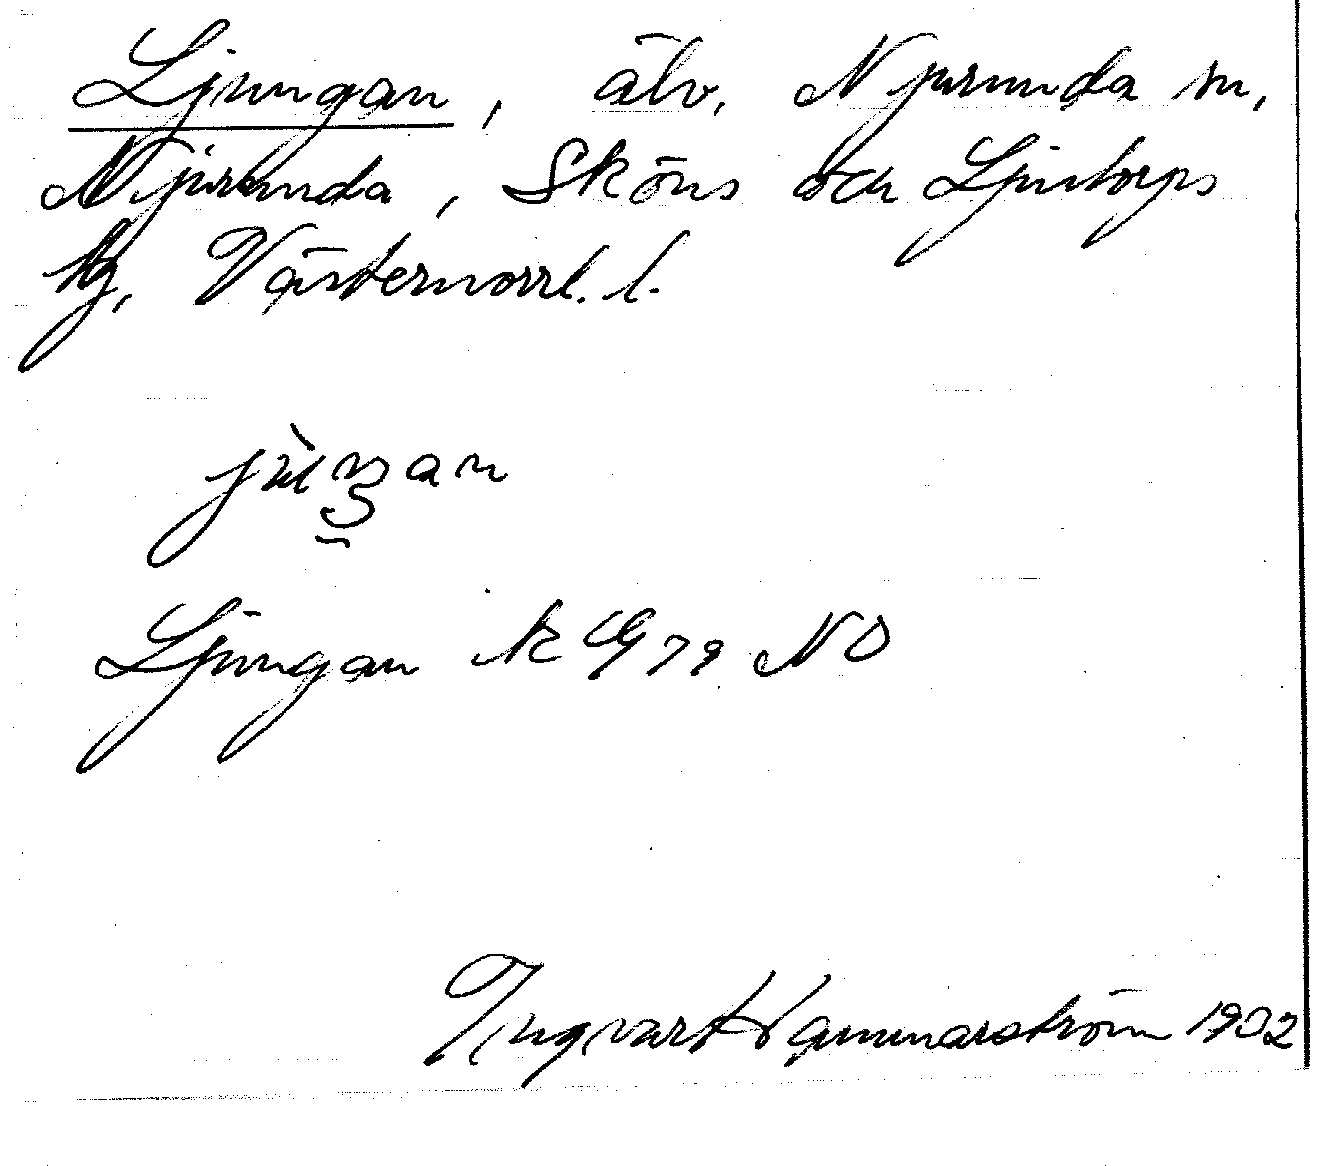 Ljungan, älv, Njurunda sn,
Njurunda, Sköns och Ljustorps
tg, Västernorrl. l.
Ljungan K G 79 NO
Ingvar Hammarström 1902